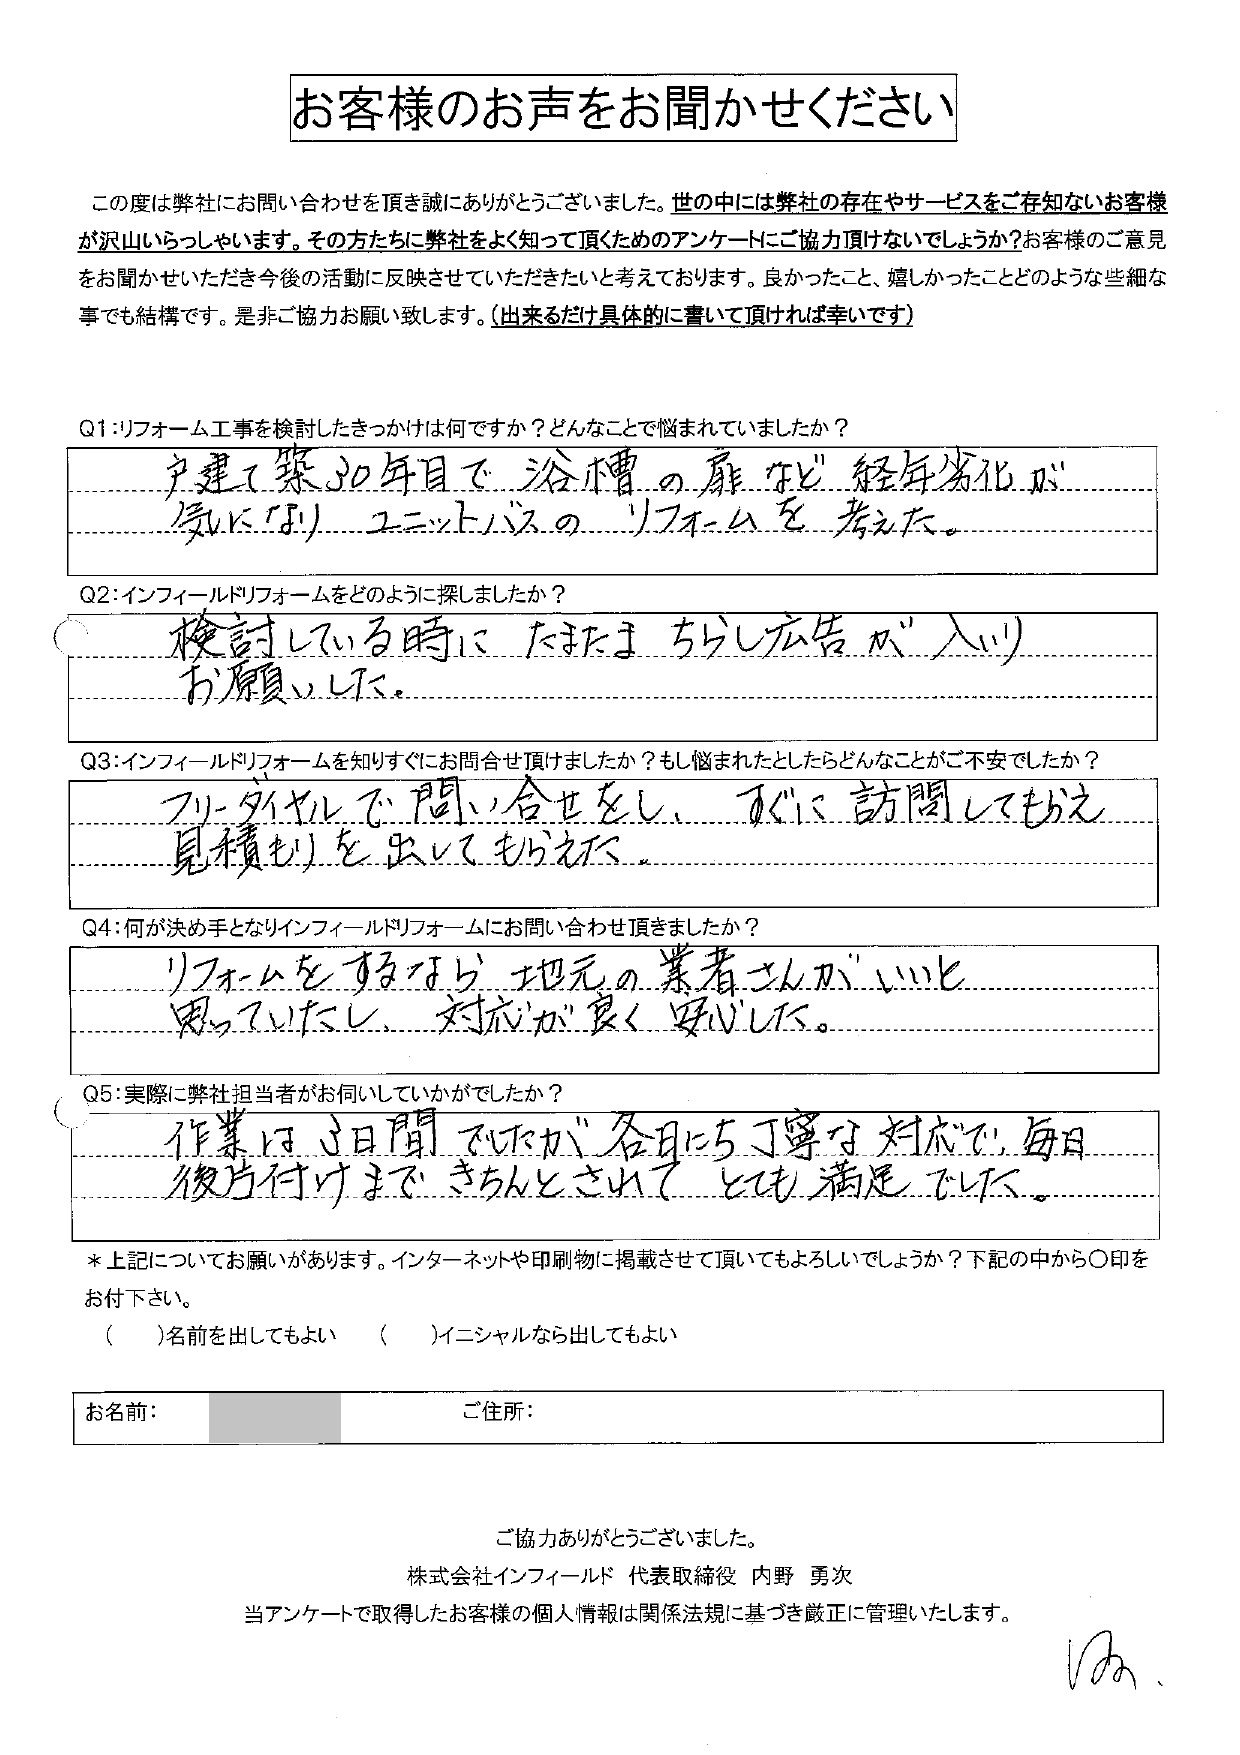 お客様のお声をお聞かせください
この度は弊社にお問い合わせを頂き誠にありがとうございました。世の中には弊社の存在やサービスをご存知ないお客様
が沢山いらっしゃいます。その方たちに弊社をよく知って頂くためのアンケートにご協力頂けないでしょうか?お客様のご意見
をお聞かせいただき今後の活動に反映させていただきたいと考えております。良かったこと、嬉しかったことどのような些細な
事でも結構です。是非ご協力お願い致します。(出来るだけ具体的に書いて頂ければ幸いです)
Q1:リフォーム工事を検討したきっかけは何ですか?どんなことで悩まれていましたか?
戸建て築30年目で 浴槽の扉など 経年劣化が
気になり ユニットバスの リフォームを 考えた。
Q2:インフィールドリフォームをどのように探しましたか?
検討している時に たまたま ちらし広告が 入いり
お願いした。
Q3:インフィールドリフォームを知りすぐにお問合せ頂けましたか?もし悩まれたとしたらどんなことがご不安でしたか?
フリーダイヤルで 問い合せをし、 すぐに 訪問してもらえ
見積もりを 出してもらえた。
Q4:何が決め手となりインフィールドリフォームにお問い合わせ頂きましたか?
リフォームをするなら 地元の 業者さんが いいと
思っていたし、 対応が良く 安心した。
Q5:実際に弊社担当者がお伺いしていかがでしたか?
作業は 3日間 でしたが 各日にち丁寧な 対応で、毎日
後片付けまで きちんとされて とても 満足でした。
*上記についてお願いがあります。インターネットや印刷物に掲載させて頂いてもよろしいでしょうか?下記の中から〇印を
お付下さい。
(　　)名前を出してもよい　　(　　)イニシャルなら出してもよい
お名前:　　ご住所:
ご協力ありがとうございました。
株式会社インフィールド 代表取締役 内野 勇次
当アンケートで取得したお客様の個人情報は関係法規に基づき厳正に管理いたします。